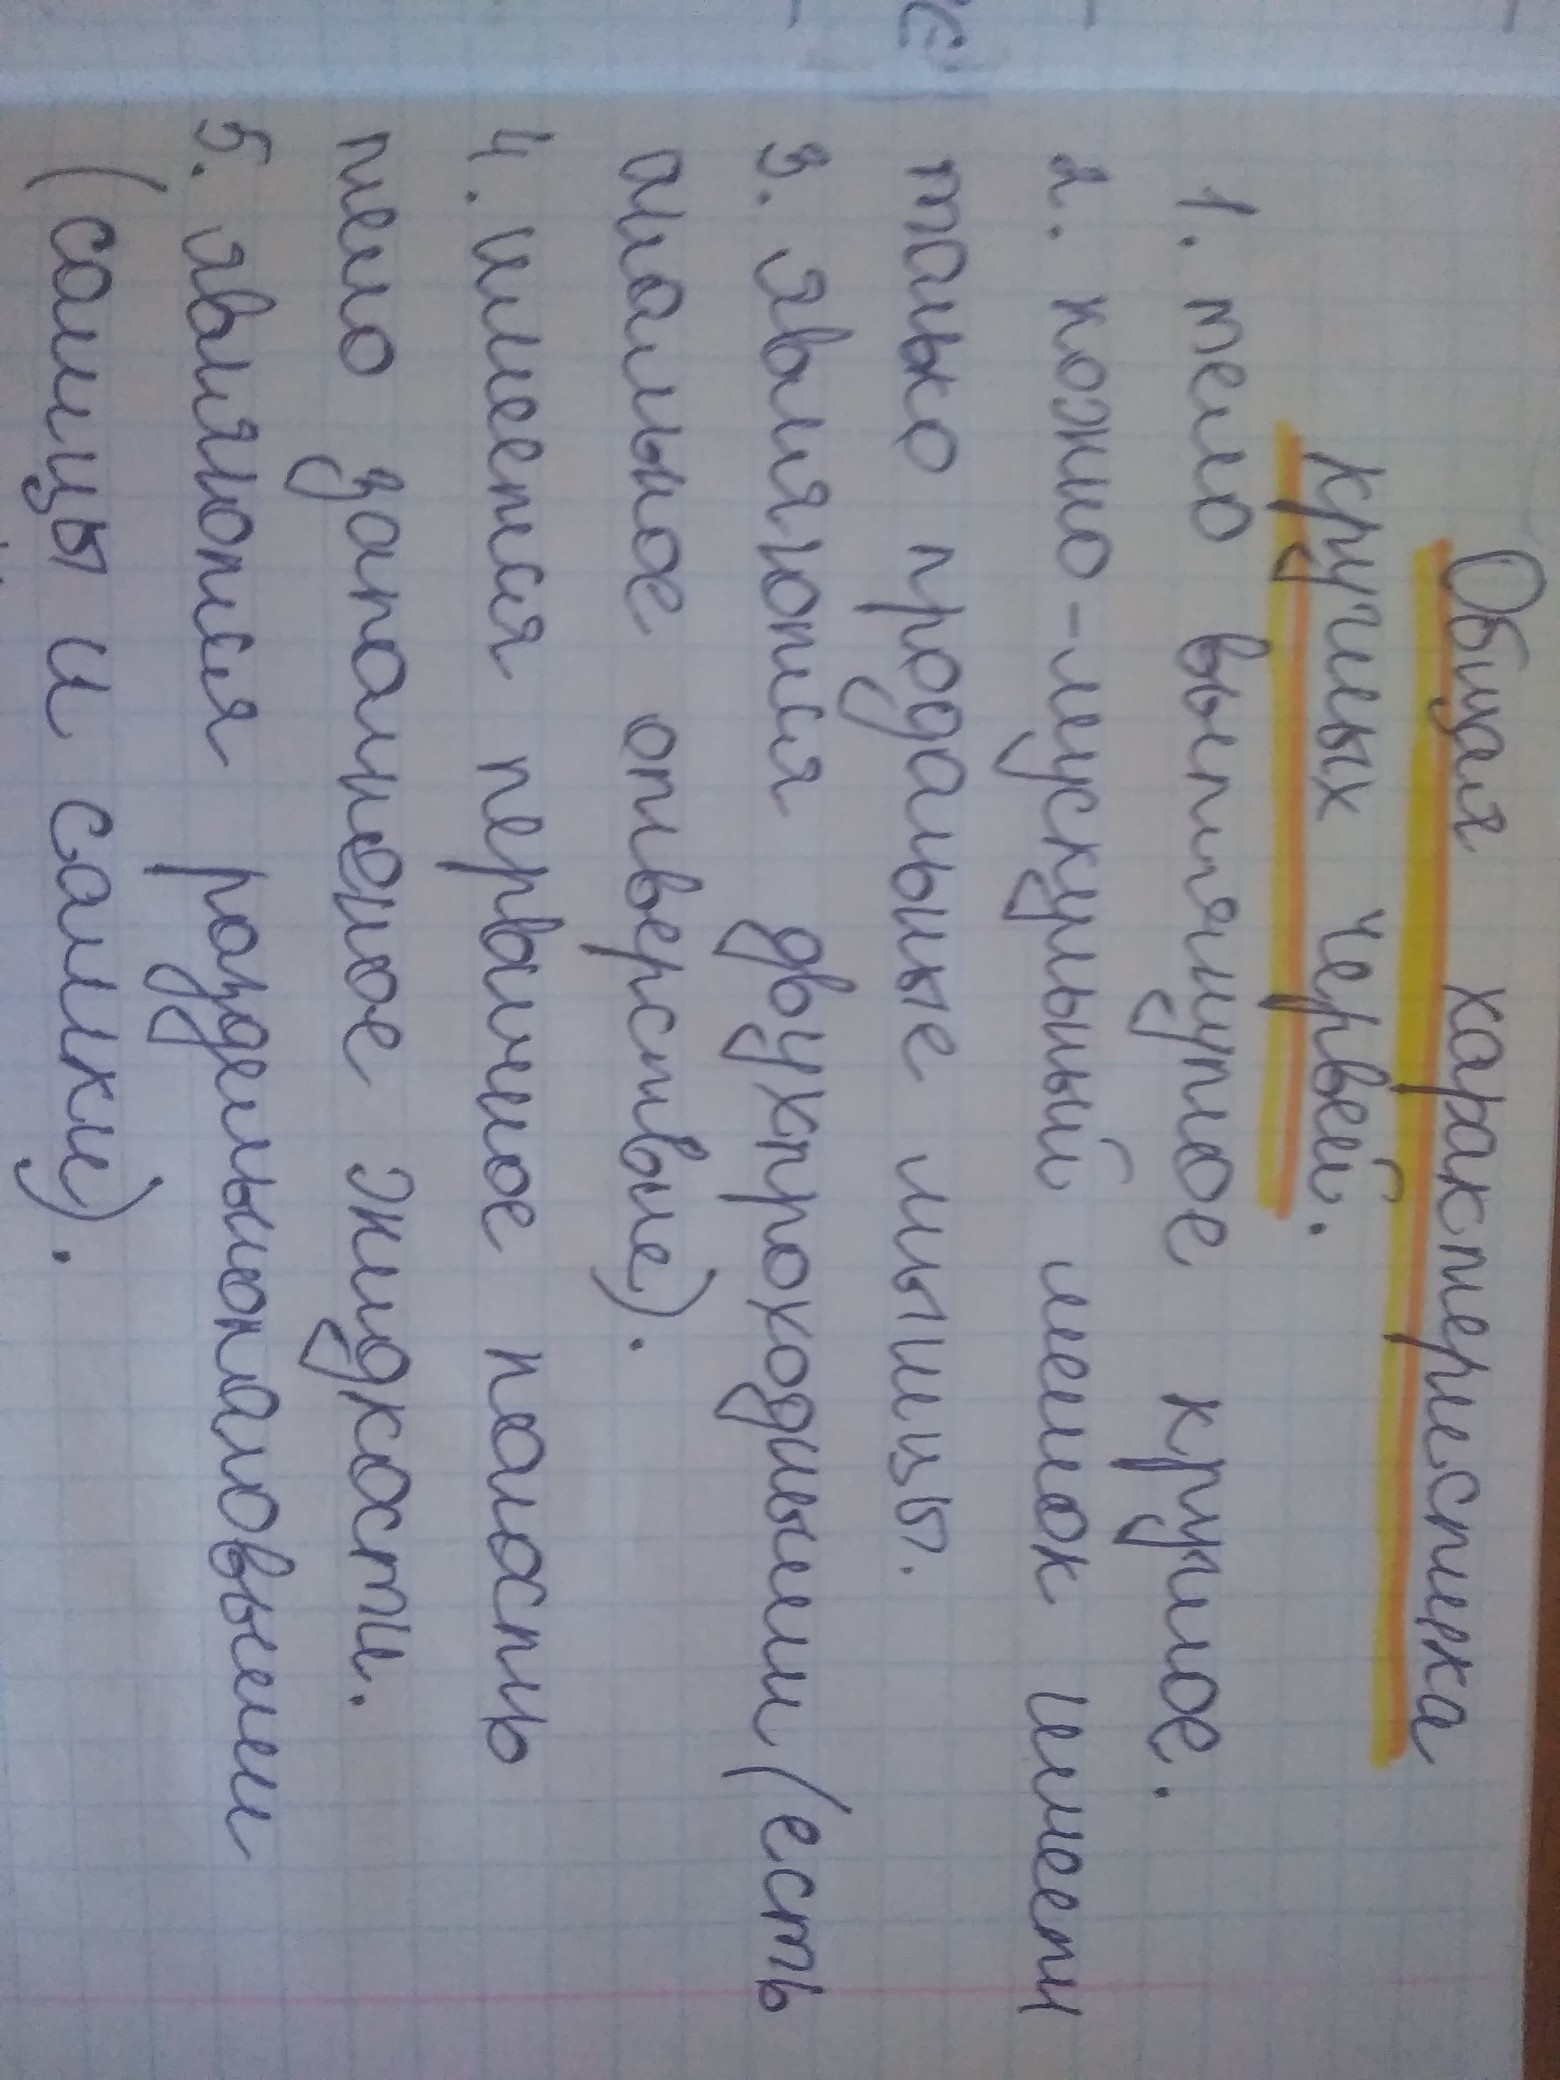 Общая характеристика
круглых червей.
1. тело вытянутое круглое.
2. кожно-мускульный мешок имеет
только продальные мышцы.
3. являются двухпроходными (есть
анальное отверстие).
4. имеется первичное полость
тело заполненое жидкости.
5. являются раздельнополовыми
(самцы и самки).